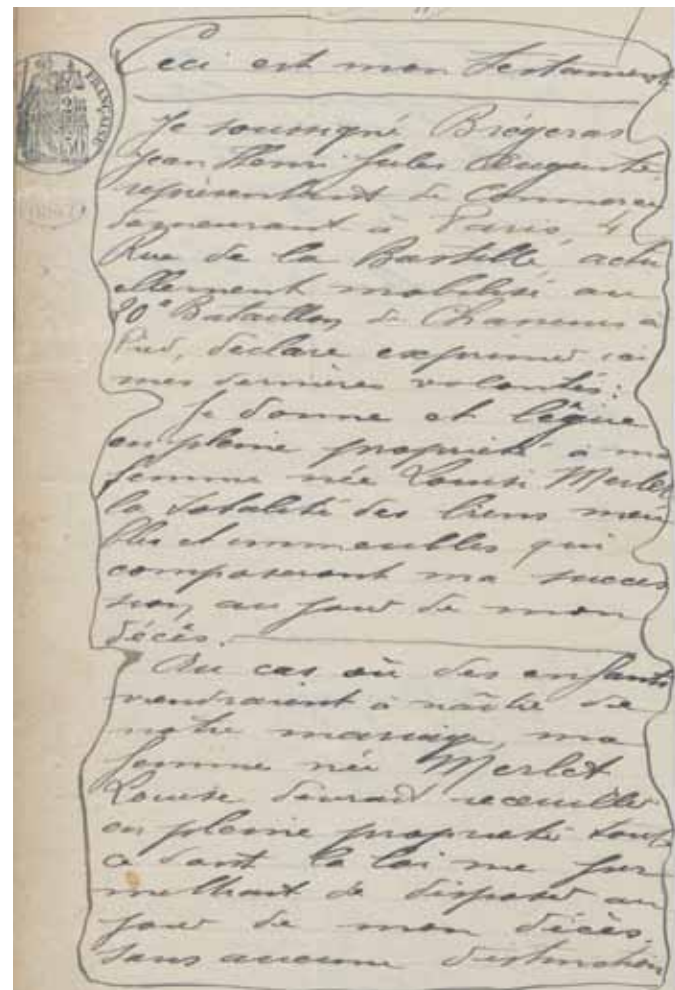 Ceci est mon testament
Je soussigné Brégeras
Jean Henri Jules Auguste
représentant de Commerce
demeurant à Paris, 4
Rue de la Bastille, actu
ellement mobilisé au
20e Bataillon de Chasseurs à
Pied, déclare exprimer ici
mes dernières volontés :
Je donne et lègue
en pleine propriété à ma
femme née Louise Merlet
la totalité des biens meu
bles et immeubles qui
composeront ma succes
sion au jour de mon
décès.
Au cas où des enfants
viendraient à naître de
notre mariage, ma
femme née Merlet
Louise devrait recueillir
en pleine propriété tout
ce dont la loi me per
mettrait de disposer au
jour de mon décès,
sans aucune distinction
FRANÇAISE